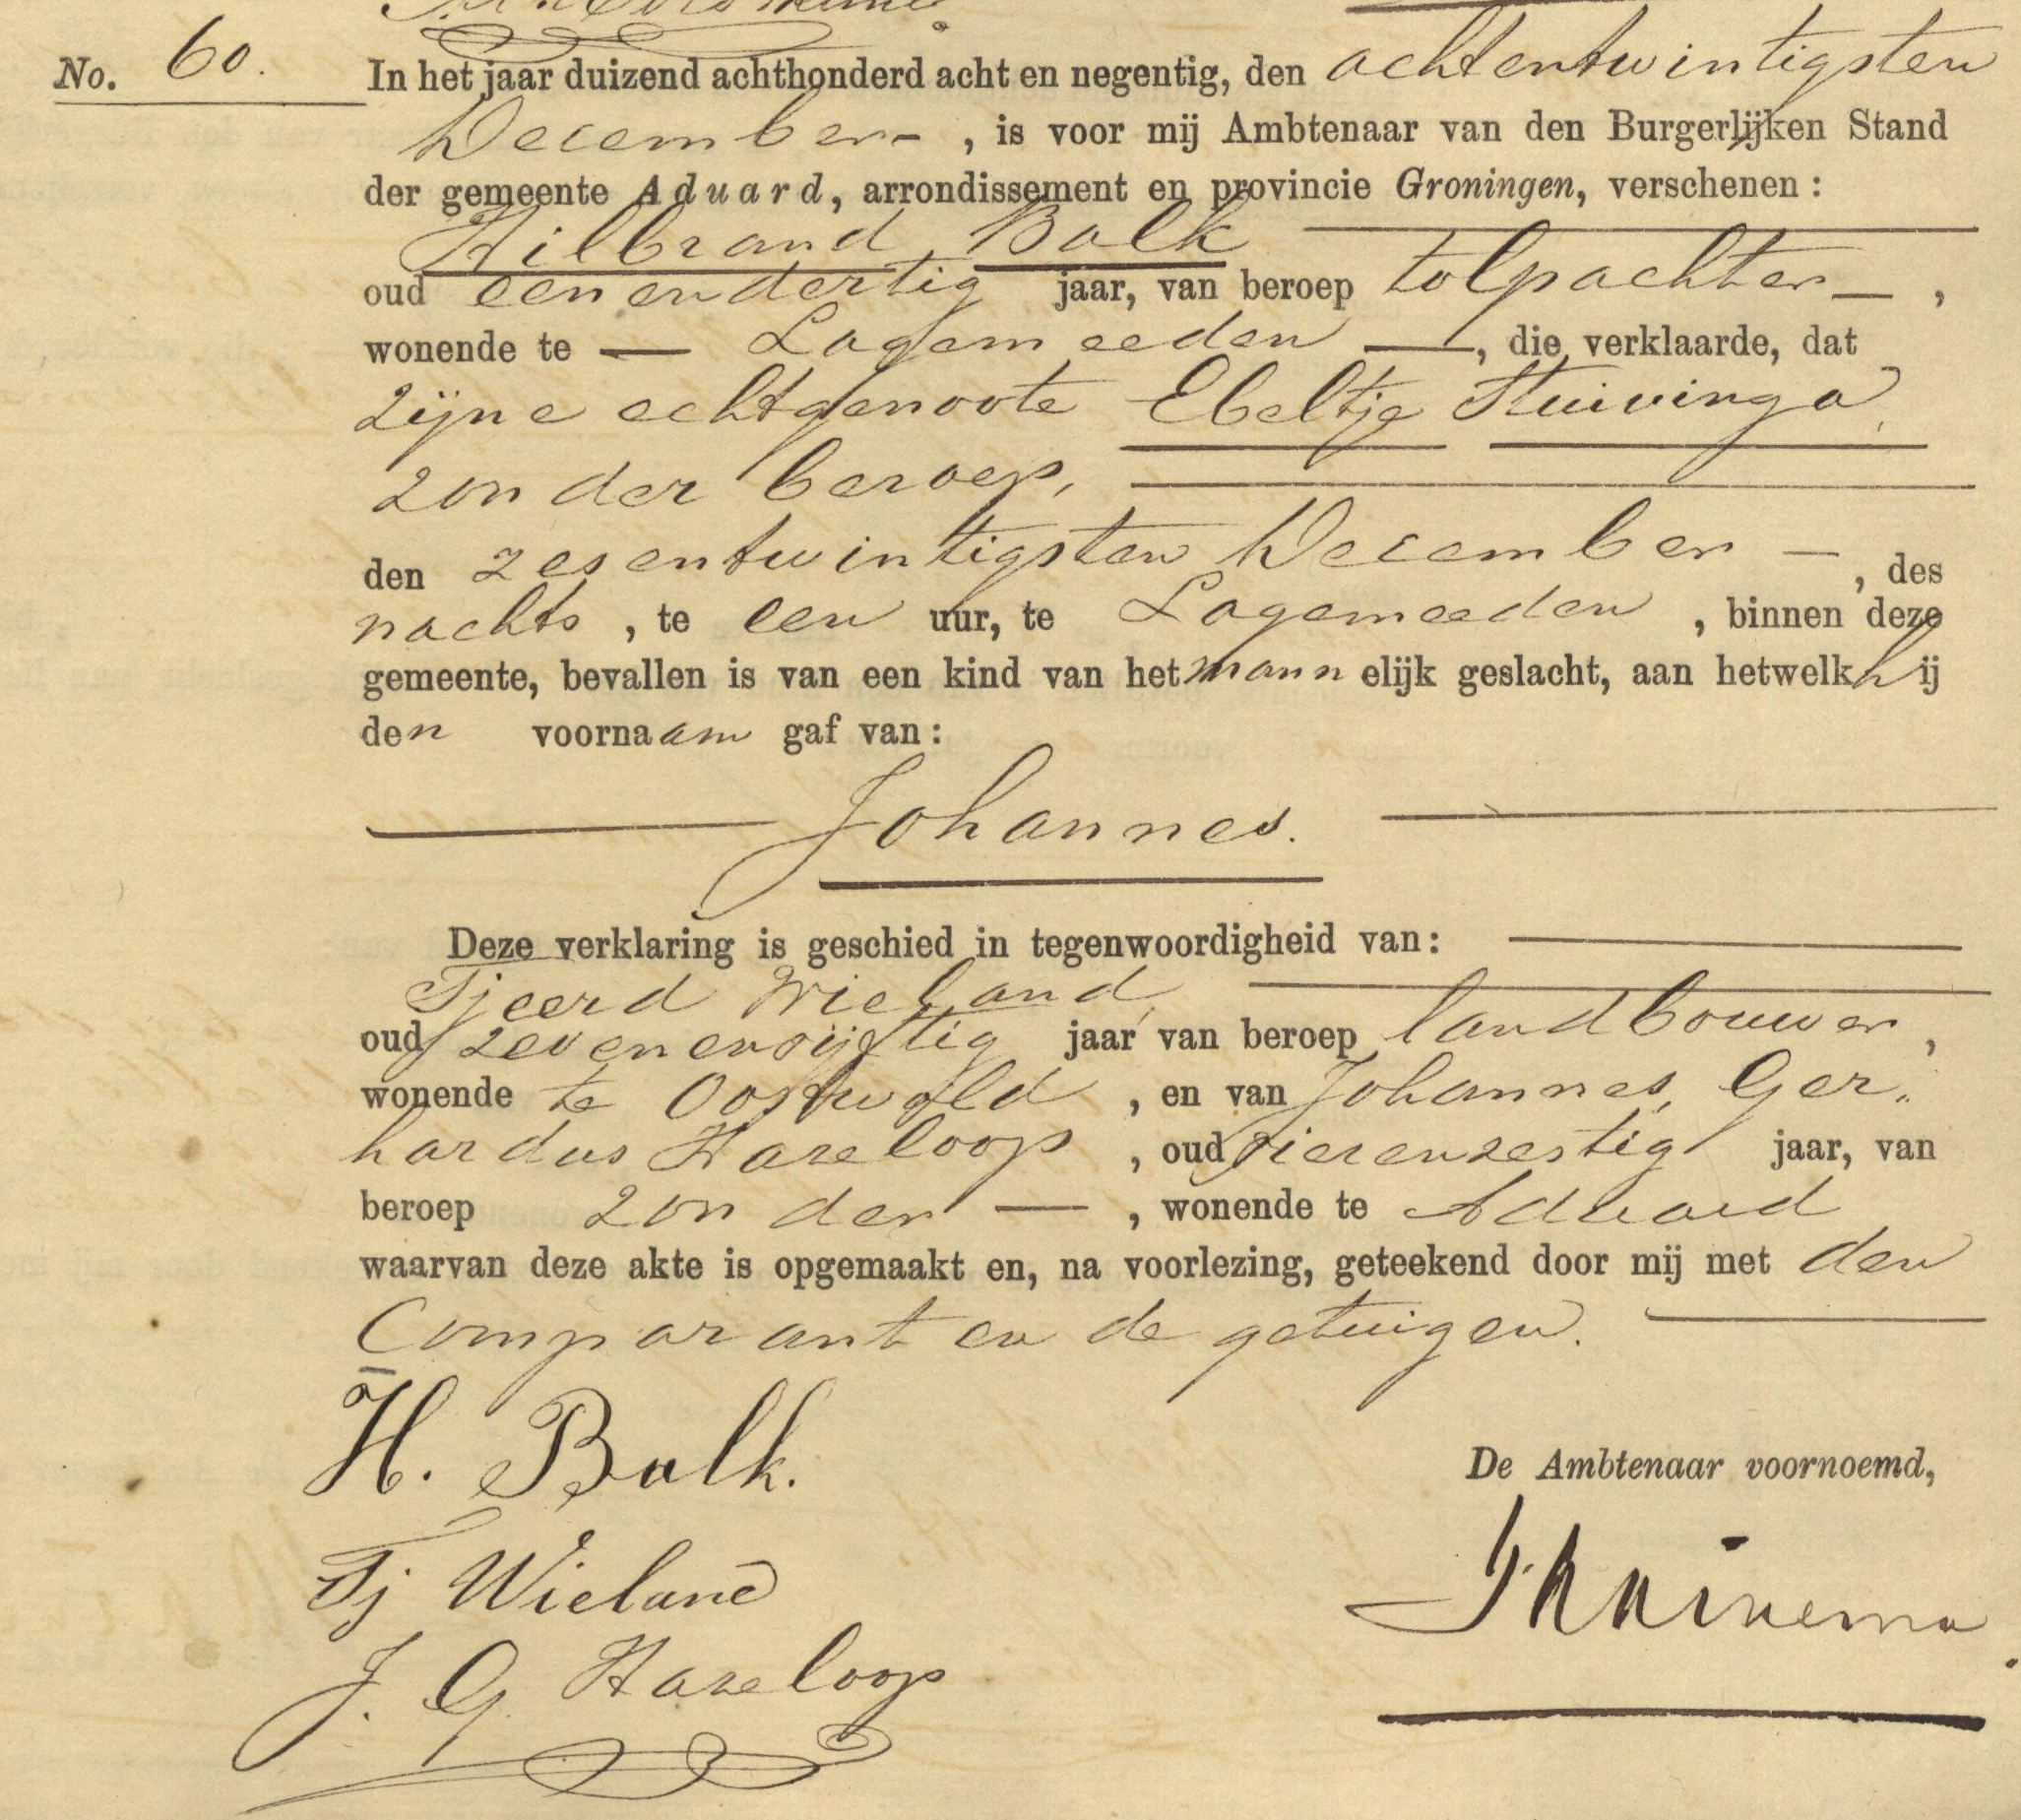 No. 60. In het jaar duizend achthonderd acht en negentig, den achtentwintigsten
December – , is voor mij Ambtenaar van den Burgerlijken Stand
der gemeente Aduard, arrondissement en provincie Groningen, verschenen :
Hilbrand Balk
oud eenendertig jaar, van beroep tolpachter — ,
wonende te — Lagemeeden — , die verklaarde, dat
zijne echtgenoote Ebeltje Stuivinga,
zonder beroep,
den zesentwintigsten December — , des
nachts , te een uur, te Lagemeeden , binnen deze
gemeente, bevallen is van een kind van het mannelijk geslacht, aan hetwelk hij
den voornaam gaf van :
Johannes.
Deze verklaring is geschied in tegenwoordigheid van :
Tjeerd Wieland,
oud zevenenvijftig jaar van beroep landbouwer ,
wonende te Oostwold , en van Johannes Ger„
hardus Hazeloop , oud vierenzestig jaar, van
beroep zonder — , wonende te Aduard
waarvan deze akte is opgemaakt en, na voorlezing, geteekend door mij met den
Comparant en de getuigen.
H. Balk.
De Ambtenaar voornoemd,
Tj Wieland
J. G. Hazeloop